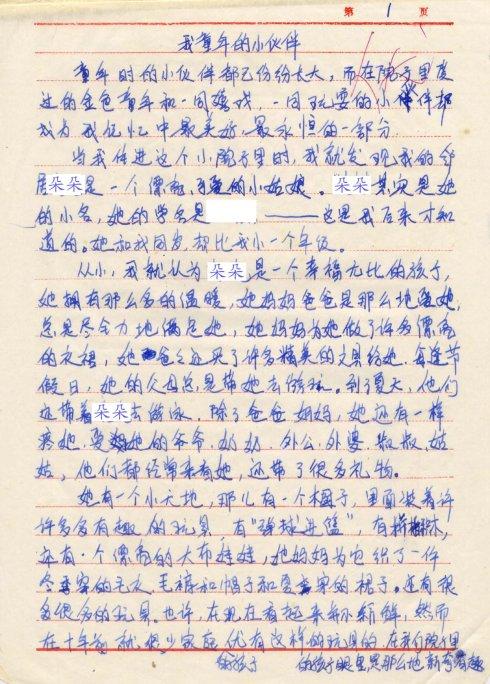 第 1 页
我童年的小伙伴
童年时的小伙伴都已纷纷长大，而在院子里度
过的金色童年和一同嬉戏，一同玩耍的小伙伴都
成为我记忆中最美好、最永恒的一部分。
当我住进这个小院子里时，我就发现我的邻
居朵朵是一个漂亮、可爱的小姑娘。朵朵其实是她
的小名，她的学名是 ——这是我后来才知
道的。她和我同岁，却比我小一个年级。
从小，我就认为朵朵是一个幸福无比的孩子，
她拥有那么多的温暖，她妈妈爸爸是那么地爱她，
总是尽全力地满足她，她妈妈为她做了许多漂亮
的衣裙，她爸爸还买了许多精美的文具给她，每逢节
假日，她的父母总是带她去游玩。到了夏天，他们
还带着朵朵去游泳。除了爸爸妈妈，她还有一样
疼她、爱她的爷爷、奶奶、外公、外婆、叔叔、姑
姑，他们都经常来看她，还带了很多礼物。
她有一个小天地，那儿有一个柜子，里面装着许
许多多有趣的玩具，有“弹球进篮”，有积木，
还有一个漂亮的大布娃娃，她妈妈为它织了一件
冬天穿的毛衣、毛裤和帽子和夏天穿的裙子。还有很
多很多的玩具。也许，在现在看起来并不新鲜，然而
在十年前就很少家庭给孩子优有这样的玩具的，在我们院子里
的孩子眼里是那么地新奇有趣